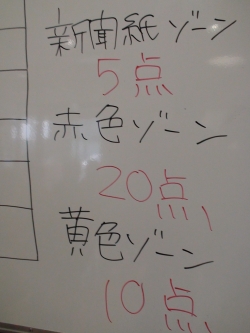 新聞紙ゾーン
5点
赤色ゾーン
20点
黄色ゾーン
10点